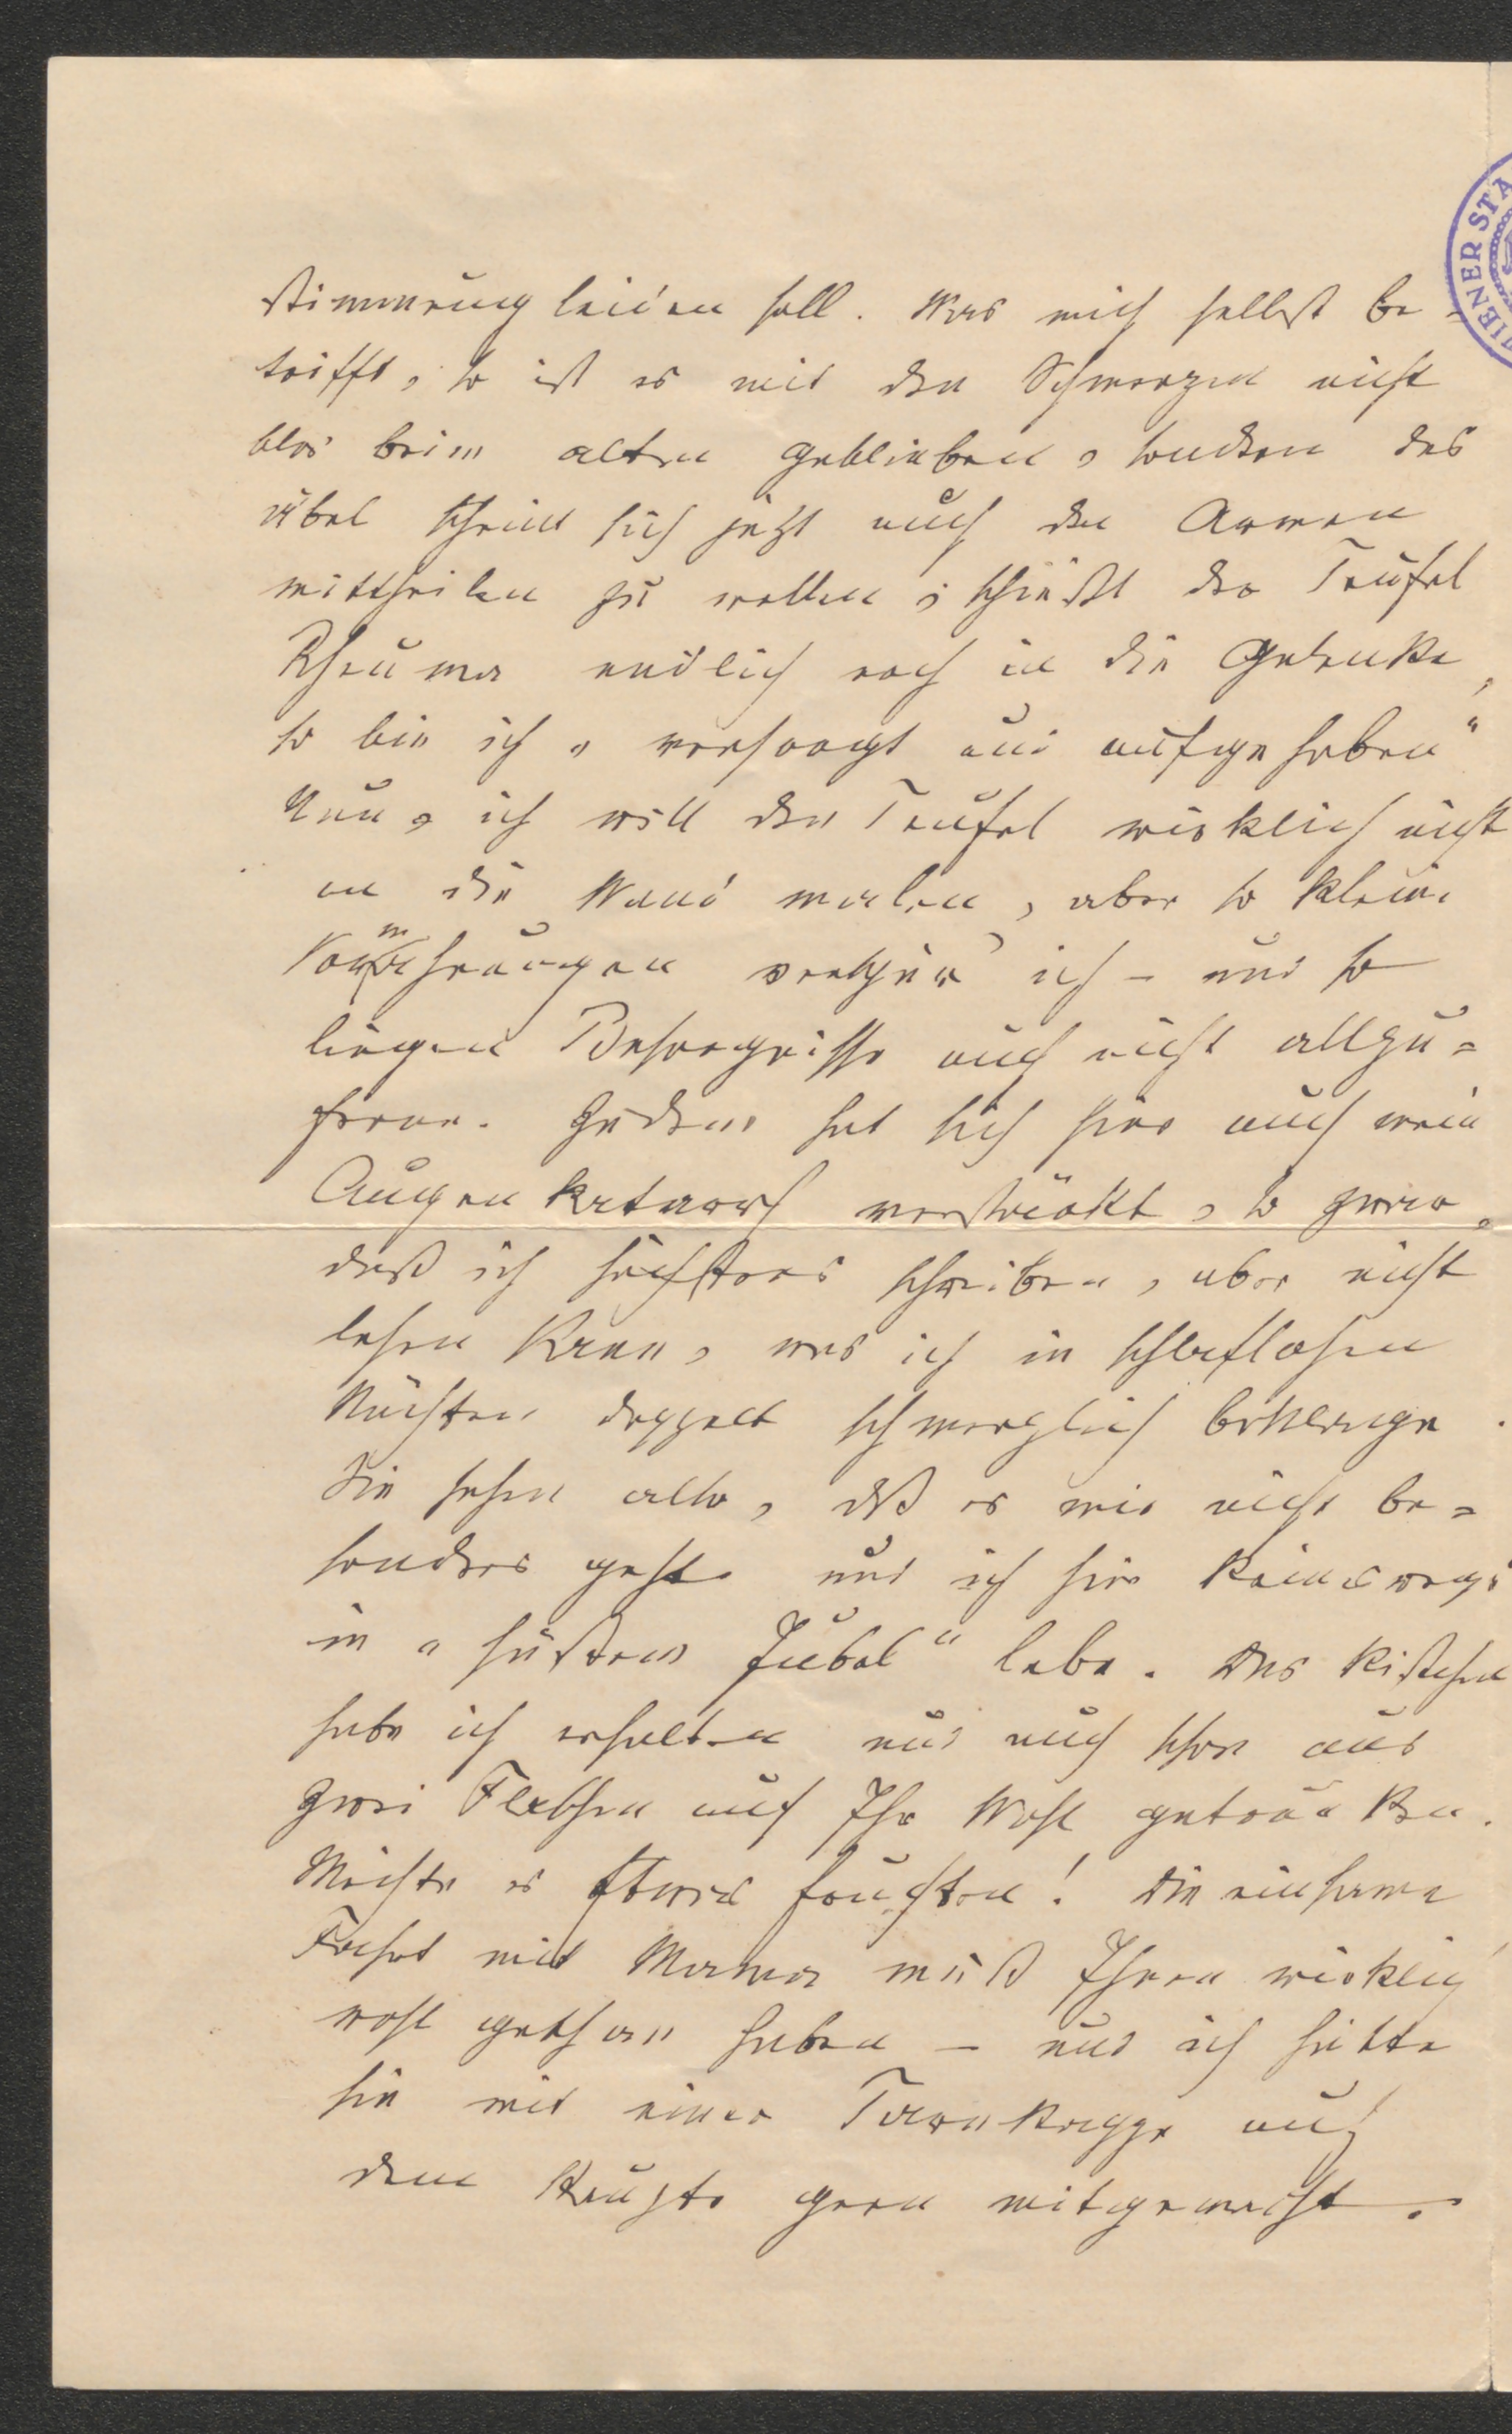 stimmung leiden soll. Was mich selbst be-
trifft, so ist es mit den Schmerzen nicht
blos beim alten geblieben, sondern das
Übel scheint sich jetzt auch den Armen
mittheilen zu wollen; schießt der Teufel
Rheuma endlich noch in die Gelenke,
so bin ich „versorgt und aufgehoben“
Nun, ich will den Teufel wirklich nicht
an die Wand malen, aber so kleine
ich – und so
liegen Besorgnisse auch nicht allzu-
ferne. Zudem hat sich hier auch mein
Augenkatarrh verstärkt, so zwar,
daß ich höchstens schreiben, aber nicht
lesen kann, was ich in schlaflosen
Nächten doppelt schmerzlich beklage.
Sie sehen also, daß es mir nicht be-
sonders geht und ich hier keineswegs
in „süßem Jubel“ lebe. Das Kistchen
habe ich erhalten und auch schon aus
zwei Flaschen auf Ihr Wohl getrunken.
Möchte es etwas fruchten! Die einsame
Fahrt mit Mama muß Ihnen wirklich
wohl gethan haben – und ich hätte
sie mit einer Tarnkappe auf
dem Haupte gern mitgemacht.
WIENER STA